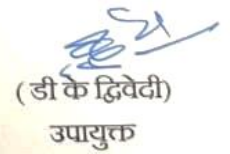 ( डी के द्विवेदी)
उपायुक्त